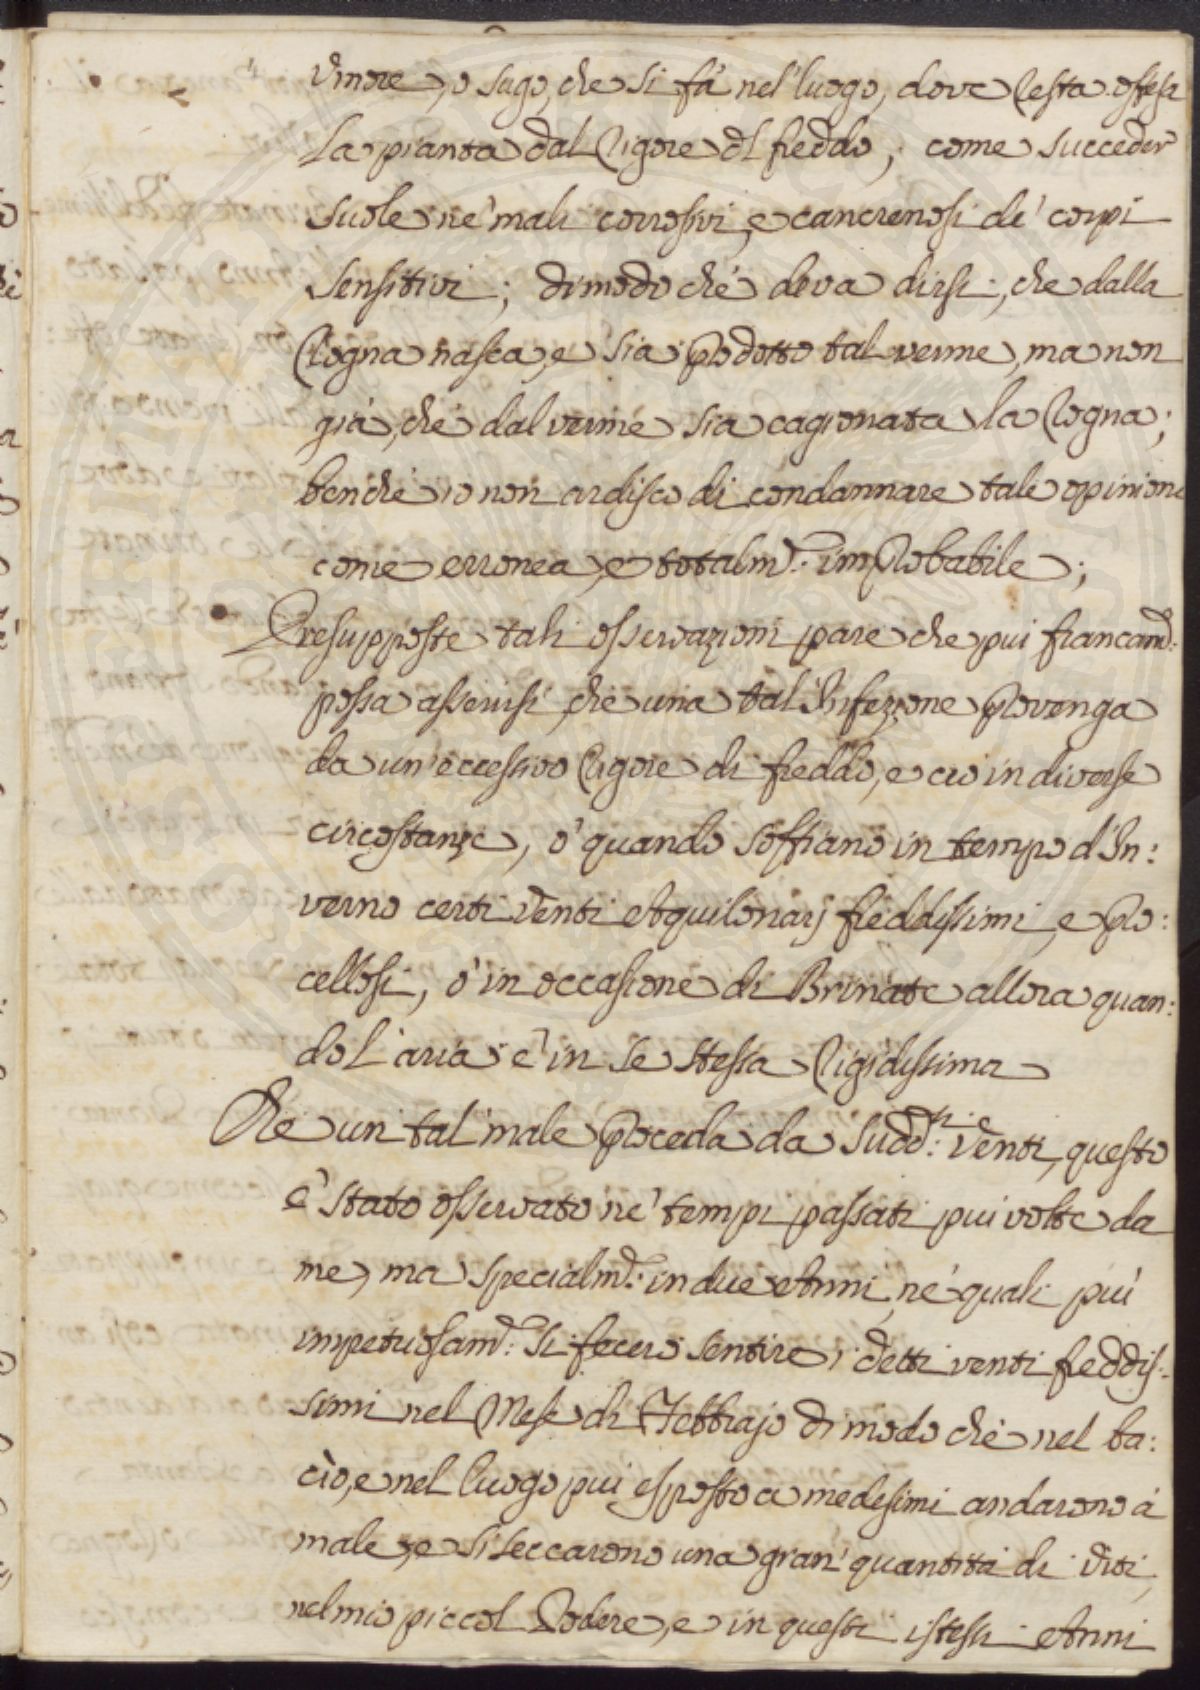 Umore, o sugo, che si fá nel luogo, dove resta offesa
la pianta dal rigore dl freddo, come succeder
suole ne' mali corrosivi, e cancrenosi de' corpi
sensitivi; dimodoché deva dirsi, che dalla
Rogna nasca, e sia prodotto tal verme, ma non
giá, ché dal verme sia cagionata la Rogna;
benché io non ardisco di condannare tale opinione
come erronea, e totalmte: improbabile;
Presupposte tali osservazioni pare che piu francamte:
possa asserirsi, che una tal' Infezione provenga
da un' eccessivo rigore di freddo, e ció in diverse
circostanze, ó quando soffiano in tempo d'In:
verno certi Venti Aquilonarj freddissimi, e pro:
cellosi, ó in occasione di Brinate allora quan:
do l'aria é in se stessa rigidissima
Che un tal' male proceda da sudd:ti Venti, questo
é stato osservato ne' tempi passati piu volte da
me, ma specialmte: in due Anni, ne' quali piú
impetuosamte: si fecero sentire i detti venti freddis:
simi nel Mese di Febbrajo di modo ché nel ba:
cìo, e nel luogo piu esposto a medesimi andarono á
male, e si seccarono una gran' quantitá di Viti
nel mio piccol Podere, e in questi istessi Anni